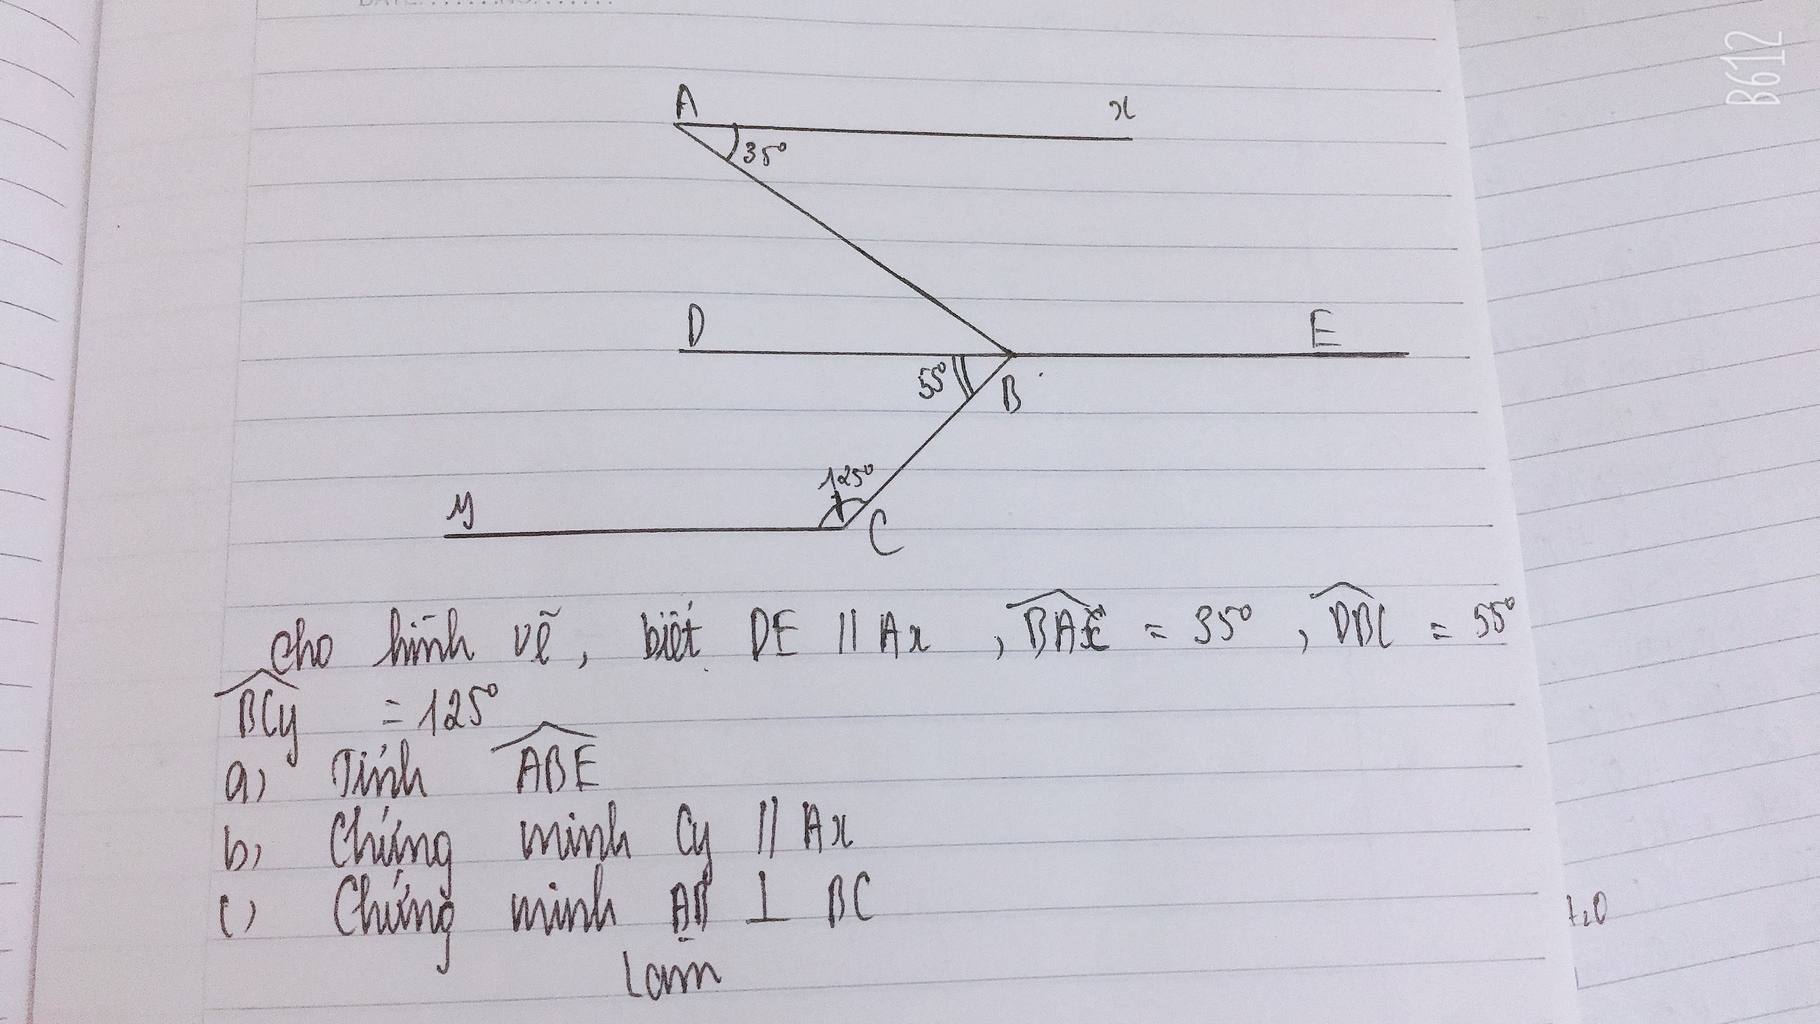 A
x
35°
D
E
55°
B
125°
y
C
cho hình vẽ, biết DE // Ax, BAx = 35°, DBC = 55°
BCy = 125°
a) Tính ABE
b) Chứng minh Cy // Ax
c) Chứng minh AB ⊥ BC
Làm
B612